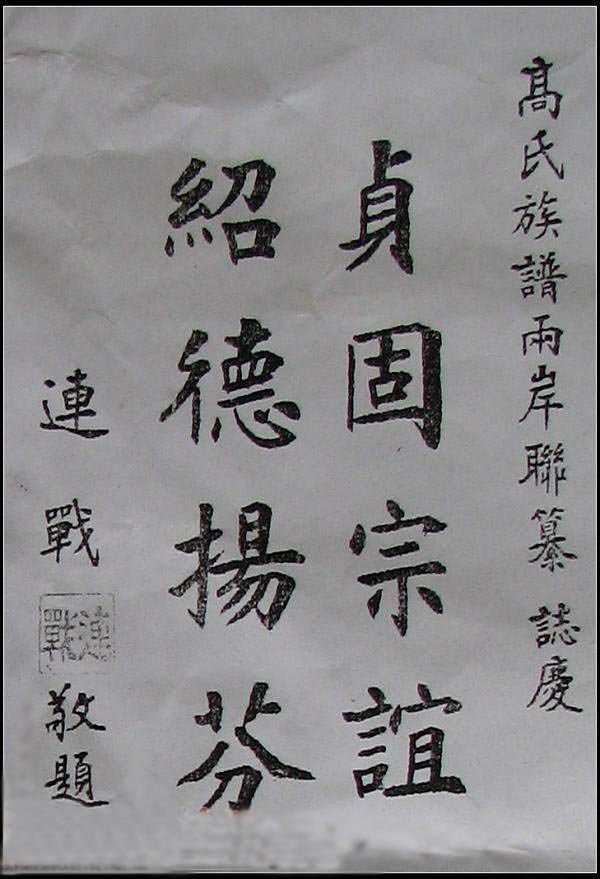 高氏族譜兩岸聯纂誌慶
貞固宗誼
紹德揚芬
連戰
連戰
敬題